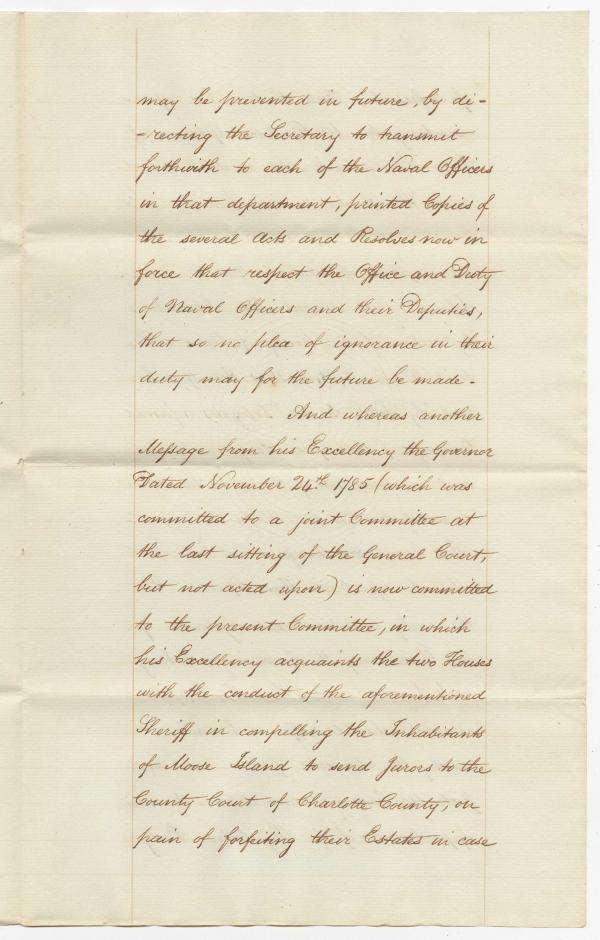 may be prevented in future, by di-
-recting the Secretary to transmit
forthwith to each of the Naval Officers
in that department, printed Copies of
the several Acts and Resolves now in
force that respect the Office and Duty
of Naval Officers and their Deputies,
that so no plea of ignorance in their
duty may for the future be made -
And whereas another
Meſsage from his Excellency the Governor
Dated November 24th. 1785 (which was
committed to a joint Committee at
the last sitting of the General Court,
but not acted upon) is now committed
to the present Committee, in which
his Excellency acquaints the two Houses
with the conduct of the aforementioned
Sheriff in compelling the Inhabitants
of Moose Island to send Jurors to the
County Court of Charlotte County, on
pain of forfeiting their Estates in case